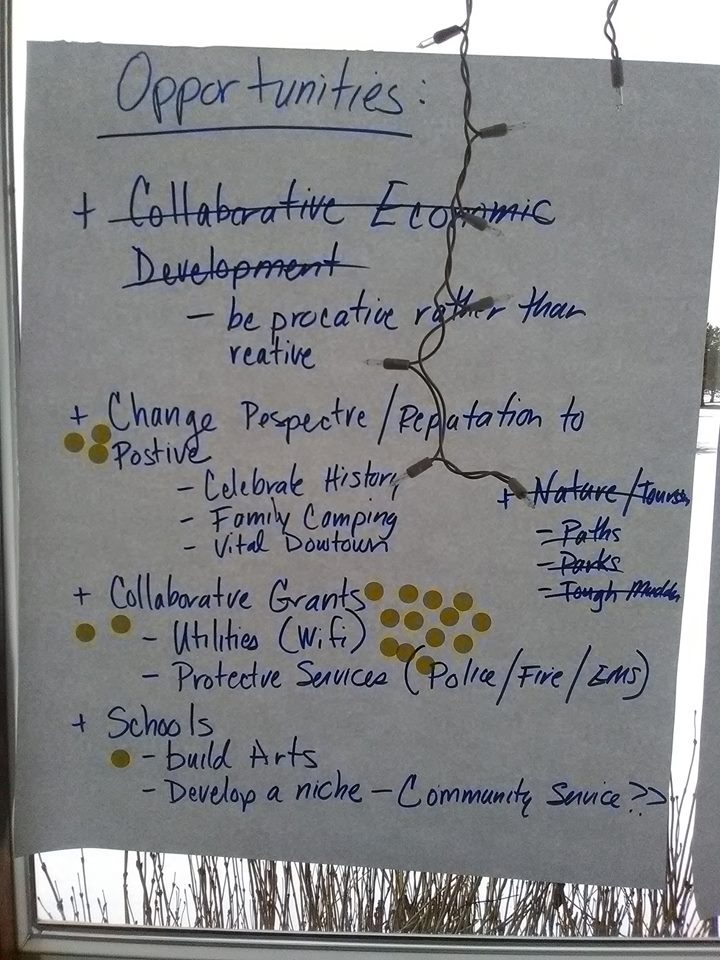 Opportunities:
+ Collaborative Economic
Development
- be procative rather than
reative
+ Change Pespectve/Reputation to
Postive
- Celebrate History
- Family Camping
- Vital Dowtown
+ Nature/Tourism
- Paths
- Parks
- Tough Mudder
+ Collaboratve Grants
- Utilities (Wifi)
- Protectve Services (Police/Fire/EMS)
+ Schools
- build Arts
- Develop a niche - Community Service??